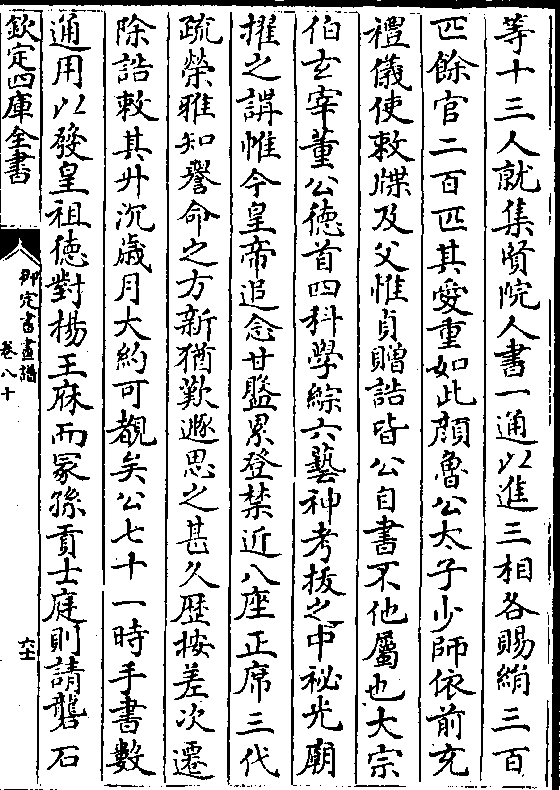 等十三人就集賢院人書一通以進三相各賜絹三百
匹餘官二百匹其愛重如此顔魯公太子少師依前充
禮儀使敕牒及父惟貞贈誥皆公自書不他屬也大宗
伯玄宰董公徳首四科學綜六藝神考拔之中秘光廟
擢之講帷今皇帝追念甘盤累登禁近八座正席三代
疏榮雅知譽命之方新猶歎遯思之甚久歴按差次遷
除誥敕其升沉歳月大約可覩矣公七十一時手書數
通用以發皇祖徳對揚王庥而冡孫貢士庭則請礱石
欽定四庫全書
御定書畫譜
卷八十